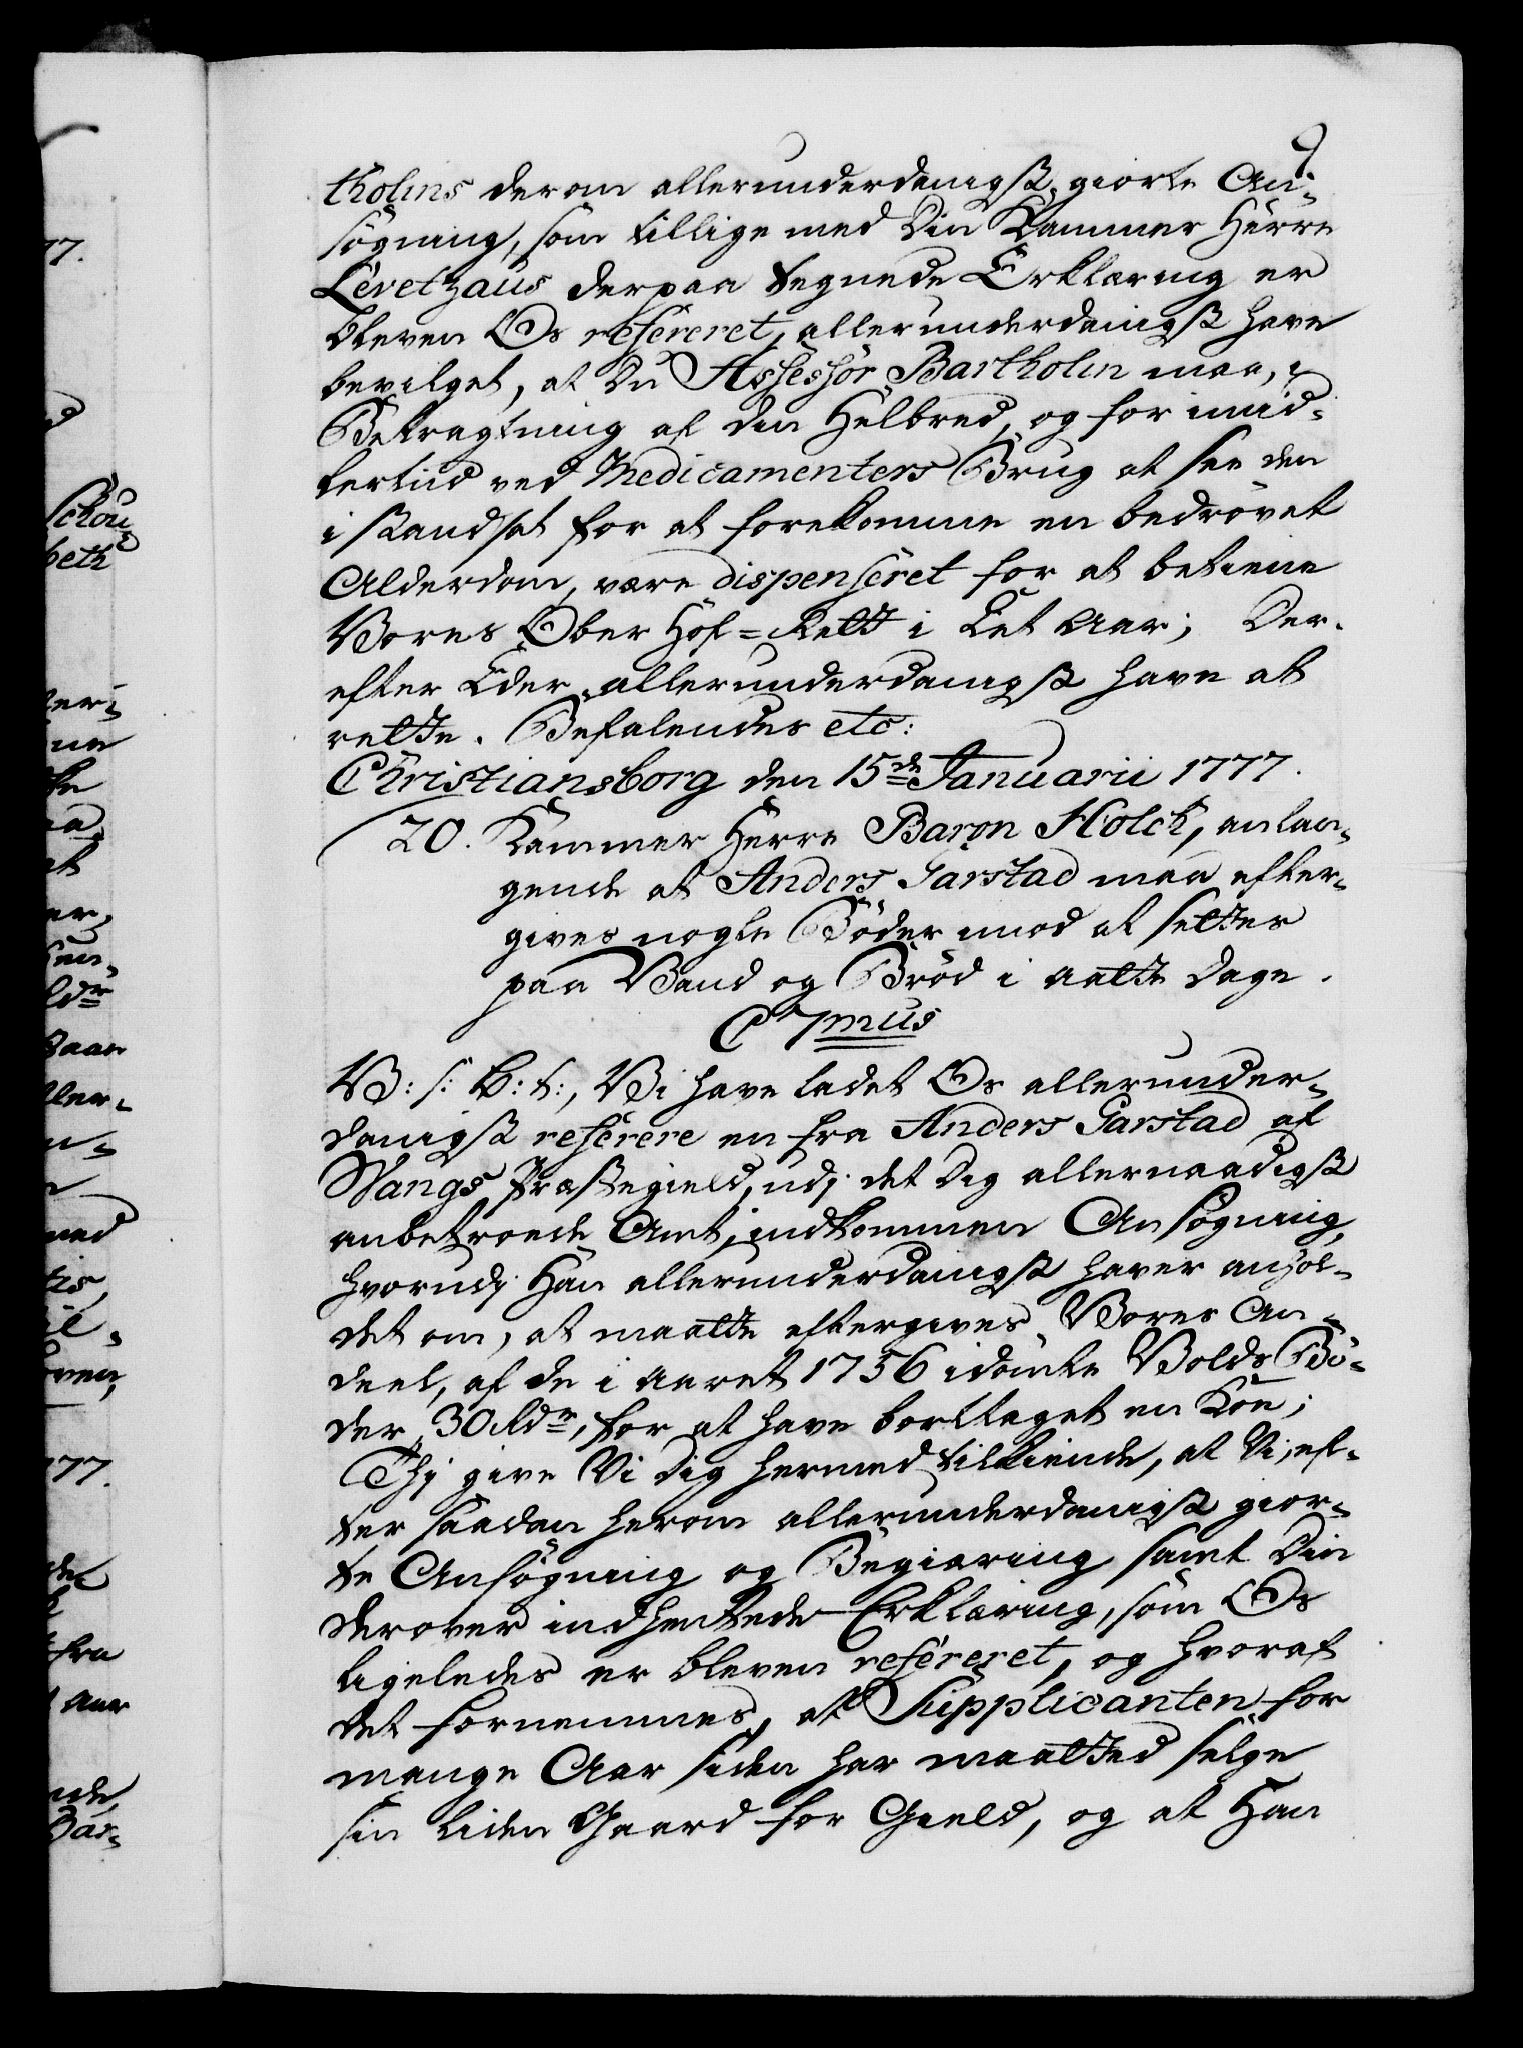 9
tholins derom allerunderdanigst giorte An-
søgning, som tillige med Din Kammer Herre
Levetzaus derpaa tegnede Erklæring er
bleven Os refereret, allerunderdanigst have
bevilget, at Du Assessor Bartholin maa, i
Betragtning af den Helbred, og for imid-
lertiid ved Medicamenters Brug at see den
i standsat for at forekomme en bedrøvet
Alderdom, være dispenseret for at betiene
Vores Ober Hof-Rett i Eet Aar; Der-
efter Eder allerunderdanigst have at
rette. Befalendes etc:
Christiansborg den 15de Januarii 1777.
20. Kammer Herre Baron Holck, anlan-
gende at Anders Garstad maa efter-
gives nogle Bøder imod at settes
paa Vand og Brød i aatte Dage.
C 7mus
V: s: G: t:, Vi have ladet Os allerunder-
danigst referere en fra Anders Garstad af
Wangs Præstegield, udj det Dig allernaadigst
anbetroede Amt, indkommen Ansøgning,
hvorudj Han allerunderdanigst haver anhol-
det om, at maatte eftergives Vores An-
deel, af de i aaret 1756 idømte Volds Bø-
der, 30 Rdr, for at have borttaget en Koe;
Thj give Vi Dig hermed tilkiende, at Vi, ef-
ter saadan herom allerunderdanigst gior-
te Ansøgning og Begiæring samt Din
derover indhentede Erklæring, som Os
ligeledes er bleven refereret, og hvoraf
det fornemmes, at Supplicanten for
mange Aar siden har maatted selge
sin liden Gaard for Gield, og at Han